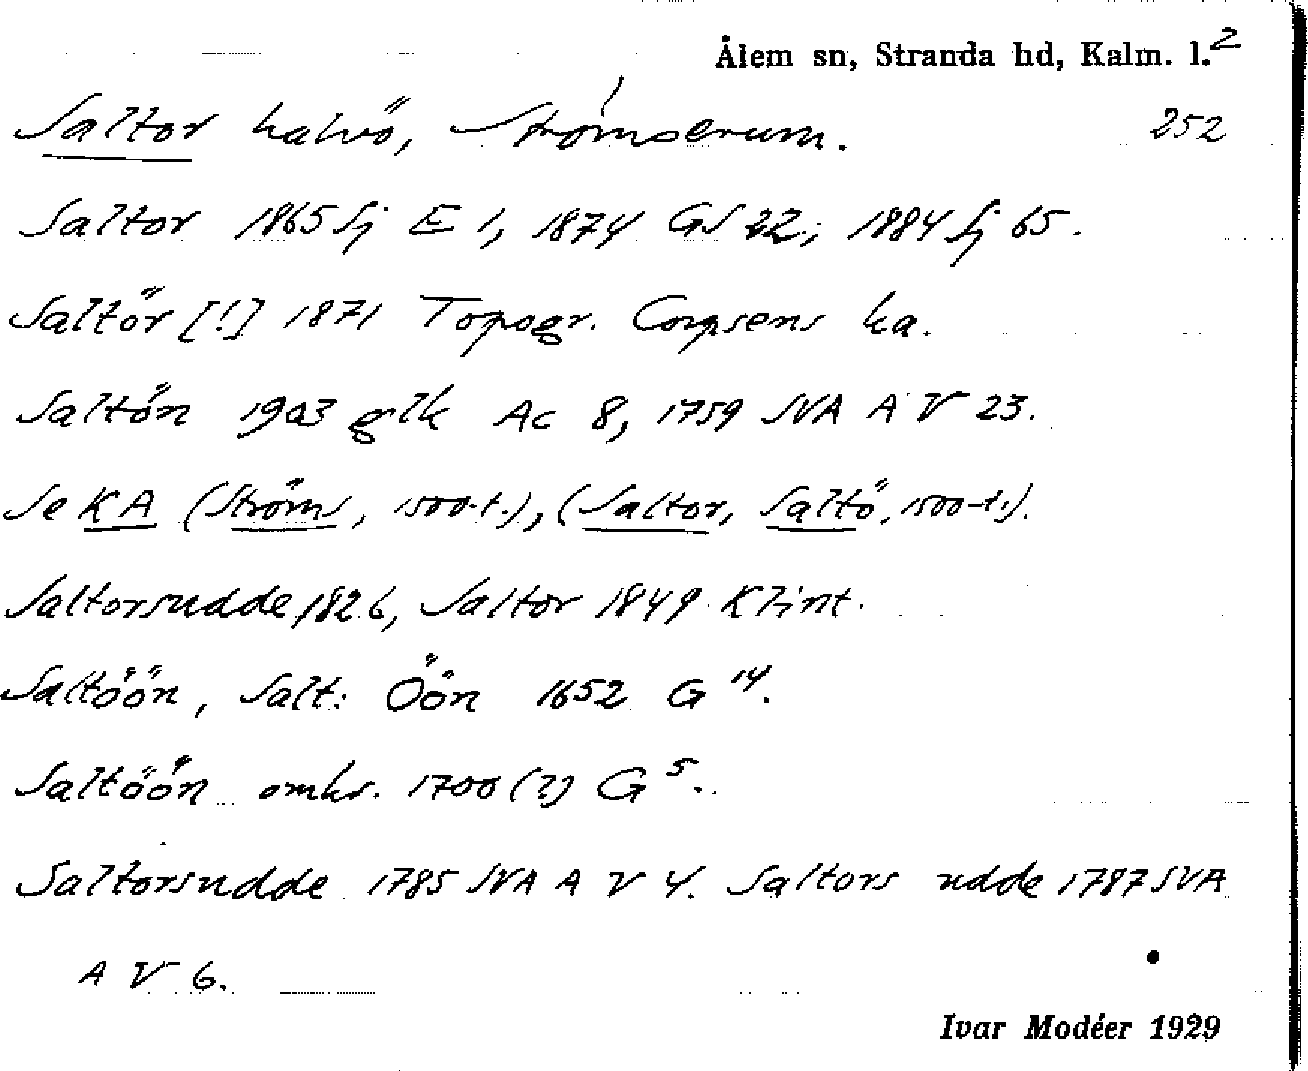 Ålem sn, Stranda hd, Kalm. l.2
Saltor halvö, Strömserum. 252
Saltor 1865 Sj E 1, 1874 GS 22; 1884 Sj 65.
Saltör [!] 1871 Topogr. Corpsens ka.
Saltön 1903 glk Ac 8, 1759 SVA A V 23.
Se KA (Ströms, 1500-t.), (Saltor, Saltö, 1500-t.).
Saltorsudde 1826, Saltor 1849 Klint.
Saltöön, Salt: Öön 1652 G 14.
Saltöön omkr. 1700 (?) G 5.
Saltorsudde 1785 SVA A V 4. Saltors udde 1787 SVA
A V 6.
Ivar Modéer 1929